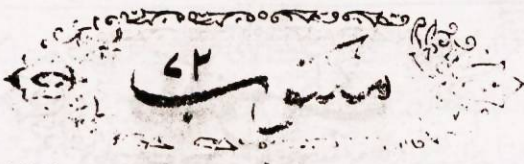 مکتوب ۷۲